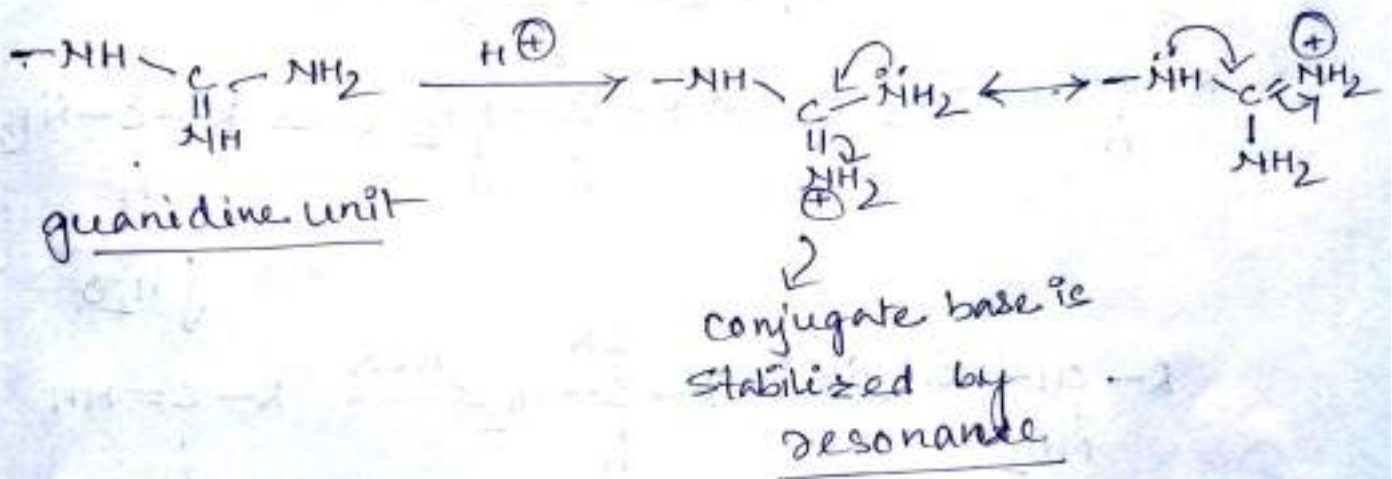 -NH C NH2 H⊕ -NH C N̈H2 ↔ -N̈H C NH2 ⊕
NH NH2 ⊕ NH2
guanidine unit
conjugate base is
stabilized by
resonance